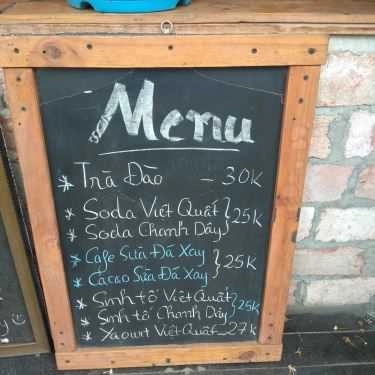 Menu
* Trà Đào - 30K
* Soda Việt Quất } 25K
* Soda Chanh Dây
* Cafe Sữa Đá Xay } 25K
* Cacao Sữa Đá Xay
* Sinh tố Việt Quất } 25K
* Sinh tố Chanh Dây
* Yaourt Việt Quất - 27K